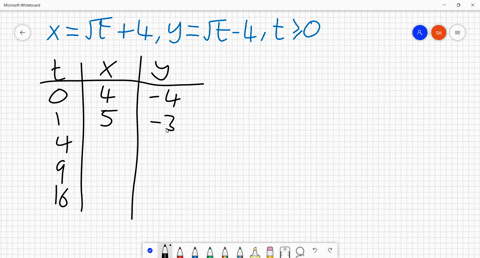 Microsoft Whiteboard
x = √t + 4, y = √t - 4, t ≥ 0
t x y
0 4 -4
1 5 -3
4
9
16